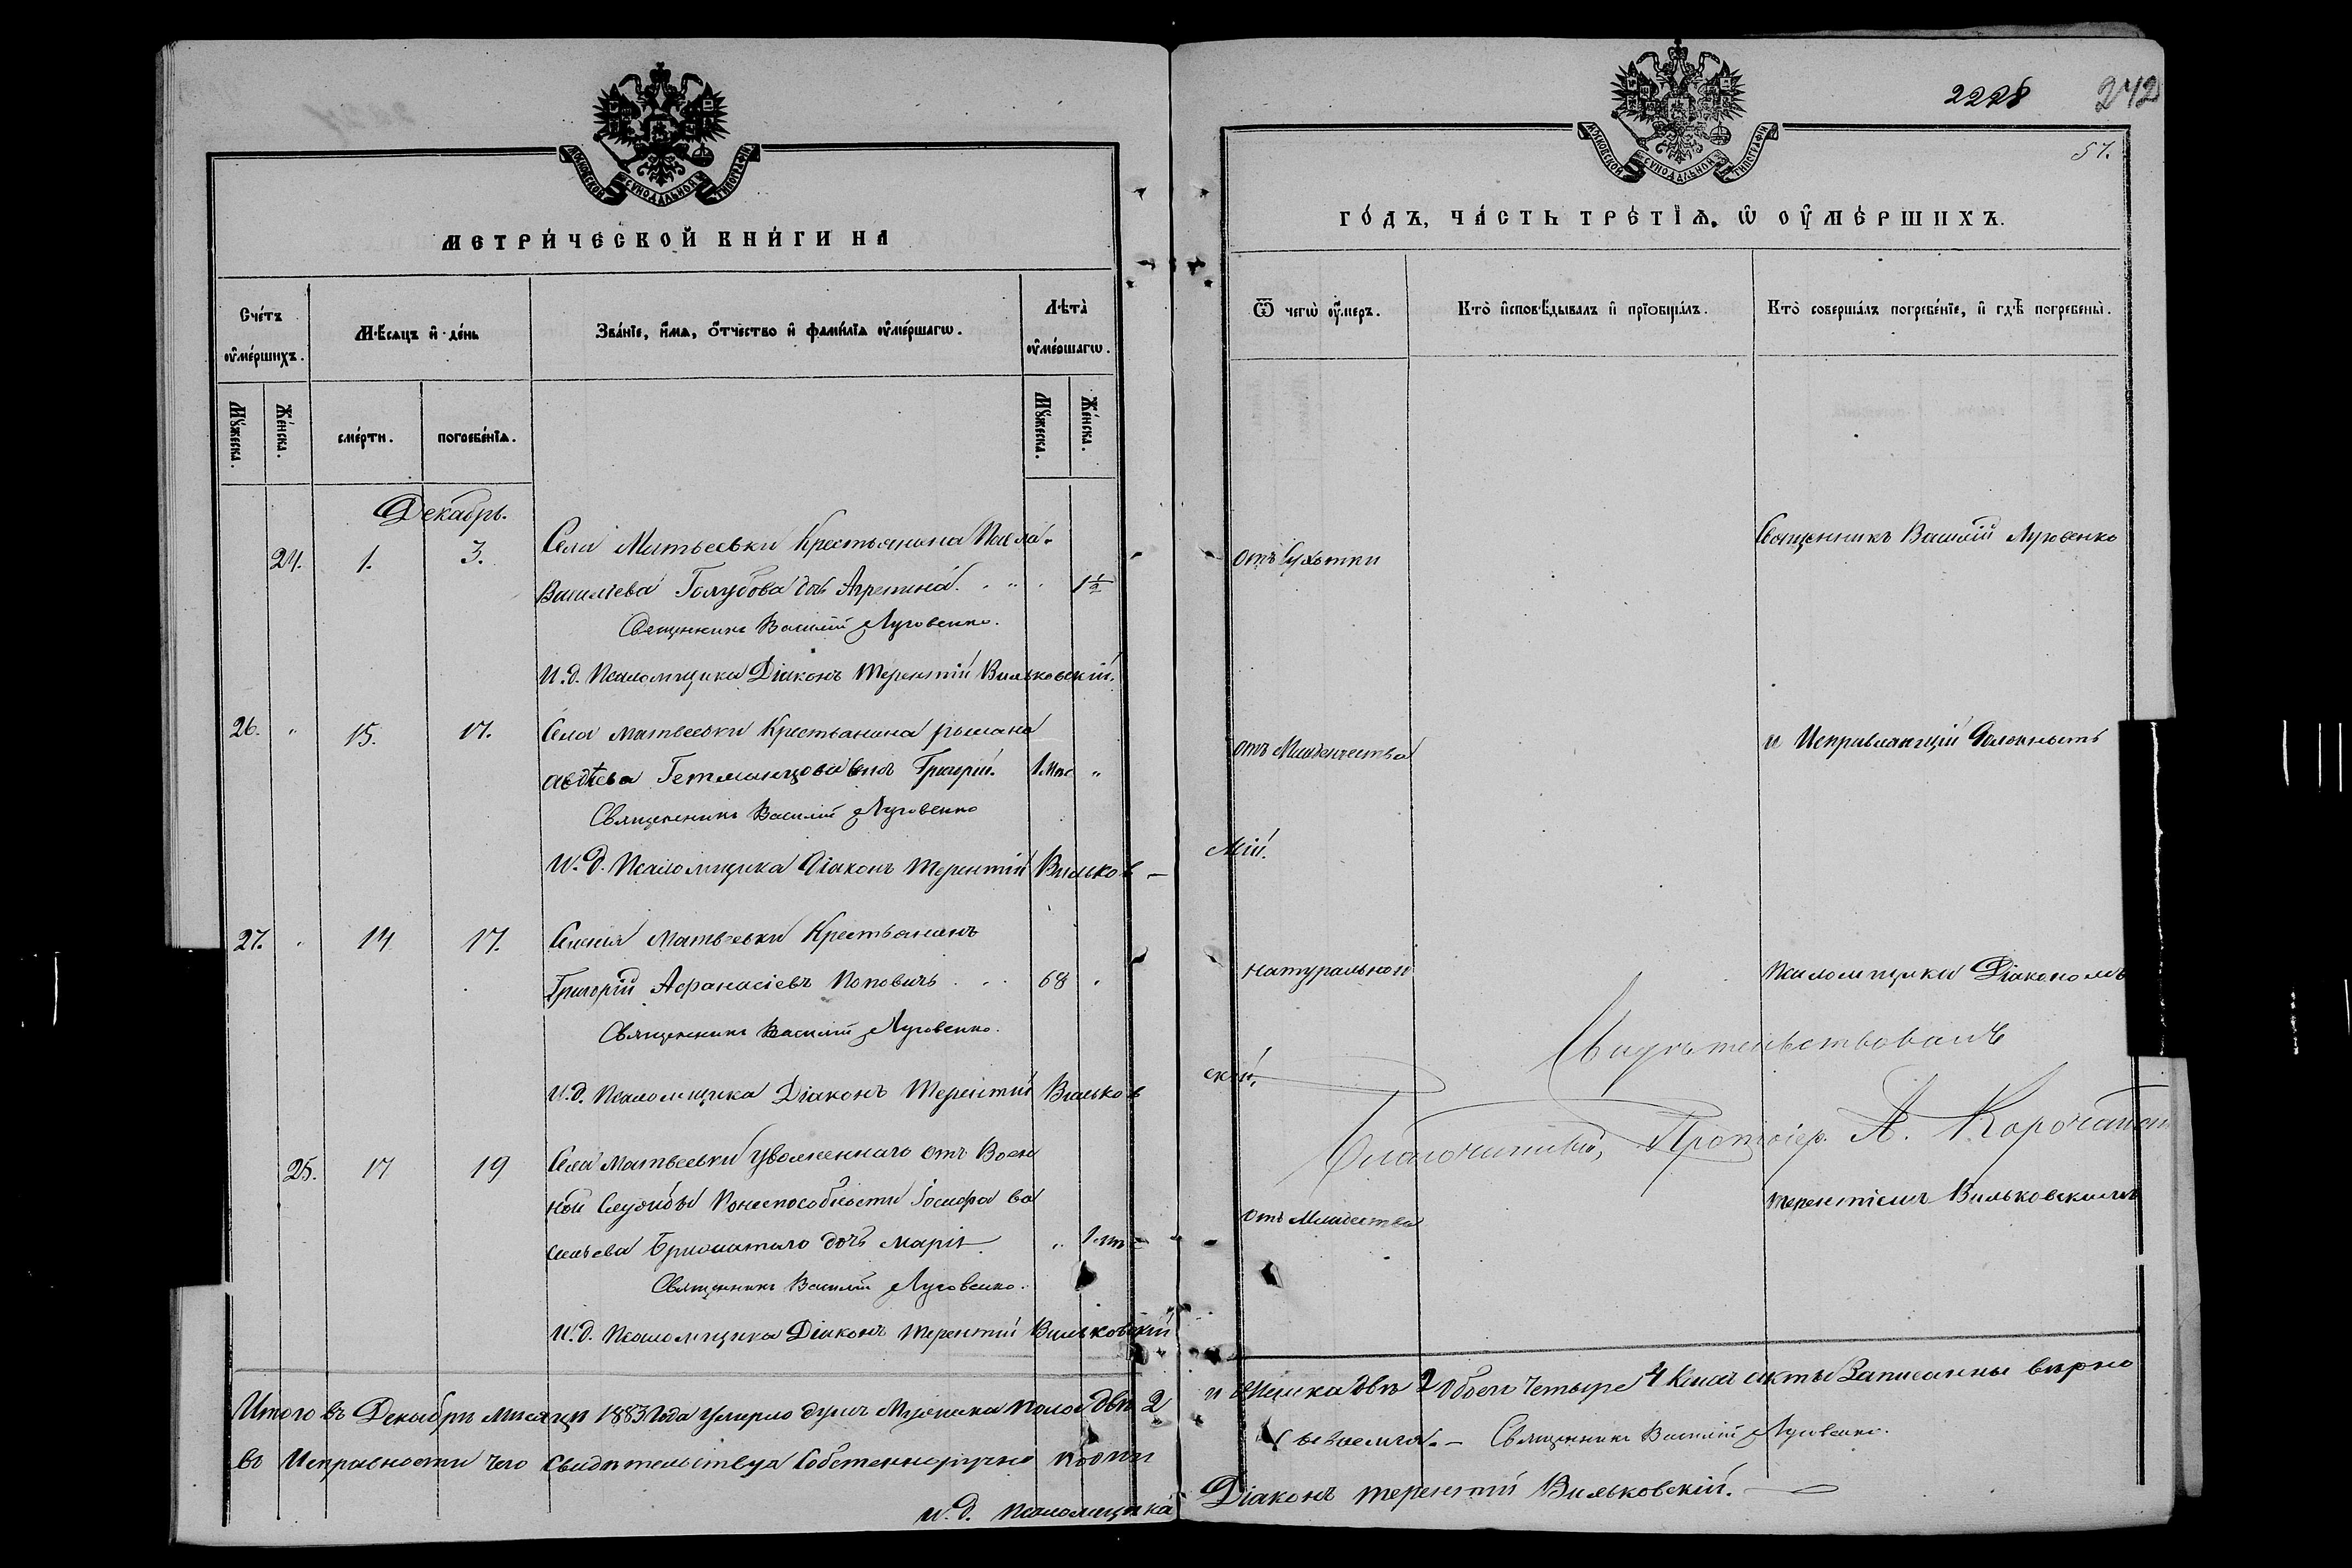 МОСКОВСКОЙ СУНОДАЛЬНОЙ ТИПОГРАФІИ
МЕТРИ́ЧЕСКОЙ КНИ́ГИ НА
Сче́тъ ѹ҆ме́ршихъ.
Мѣ́сяцъ и҆ де́нь
Зва́нїе, и҆́мѧ, ѻ҆́тчество и҆ фами́лїѧ ѹ҆ме́ршагѡ.
Лѣ́та ѹ҆ме́ршагѡ.
Мꙋ́жеска.
Же́нска.
сме́рти.
погребе́нїѧ.
Мꙋ́жеска.
Же́нска.
Декабрь.
24. 1. 3. Села Матвеевки Крестьянина Павла
Васильева Голубова дочь Агрепина. 1 1/2
Священникъ Василій Луговенко.
И. д. Псаломщика Діаконъ Терентій Вильковскій.
26. " 15. 17. Села Матвеевки Крестьянина романа
авдѣева Гетманцова сынъ Григорій. 1 мѣс "
Священникъ Василій Луговенко
И. д. Псаломщика Діаконъ Терентій Вильков-
27. " 14 17. Селенія Матвеевки Крестьянинъ
Григорій Афанасіевъ Поповичъ 68 "
Священникъ Василій Луговенко.
И. д. Псаломщика Діаконъ Терентій Вильков
25. 17 19 Села Матвеевки Уволеннаго отъ Воен
ной Службы Понеспособности Іосифа ва
сильева дочь марія.
Священникъ Василій Луговенко.
И. д. Псаломщика Діаконъ Терентій Вильковскій
Итого въ Декабрѣ мѣсяцѣ 1883 года Умерло душъ Мужеска пола двѣ 2
въ Исправности чего Свидѣтельствуя Собственоручно
и. д. псаломщика
2228
242
57.
МОСКОВСКОЙ СУНОДАЛЬНОЙ ТИПОГРАФІИ
ГО́ДЪ, ЧА́СТЬ ТРЕ́ТЇѦ, Ѡ҆ ОУ҆МЕ́РШИХЪ.
Ѿ чегѡ̀ ѹ҆́меръ.
Кто̀ и҆сповѣ́дывалъ и҆ прїобща́лъ.
Кто̀ соверша́лъ погребе́нїе, и҆ гдѣ̀ погребены̀.
отъ Сухотки
Священникъ Василій Луговенко
отъ Младенчества
и Исправляющій Должность
скій.
натуральной
псаломщика Діакономъ
Свидѣтельствовалъ
скій.
Благочинный, Протоіер. А.
терентіемъ Вильковскимъ
отъ
и женска двѣ 2 Обоего Четыре 4 акты Записанны вѣрно
Священникъ Василій Луговенко.
Діаконъ терентій Вильковскій.